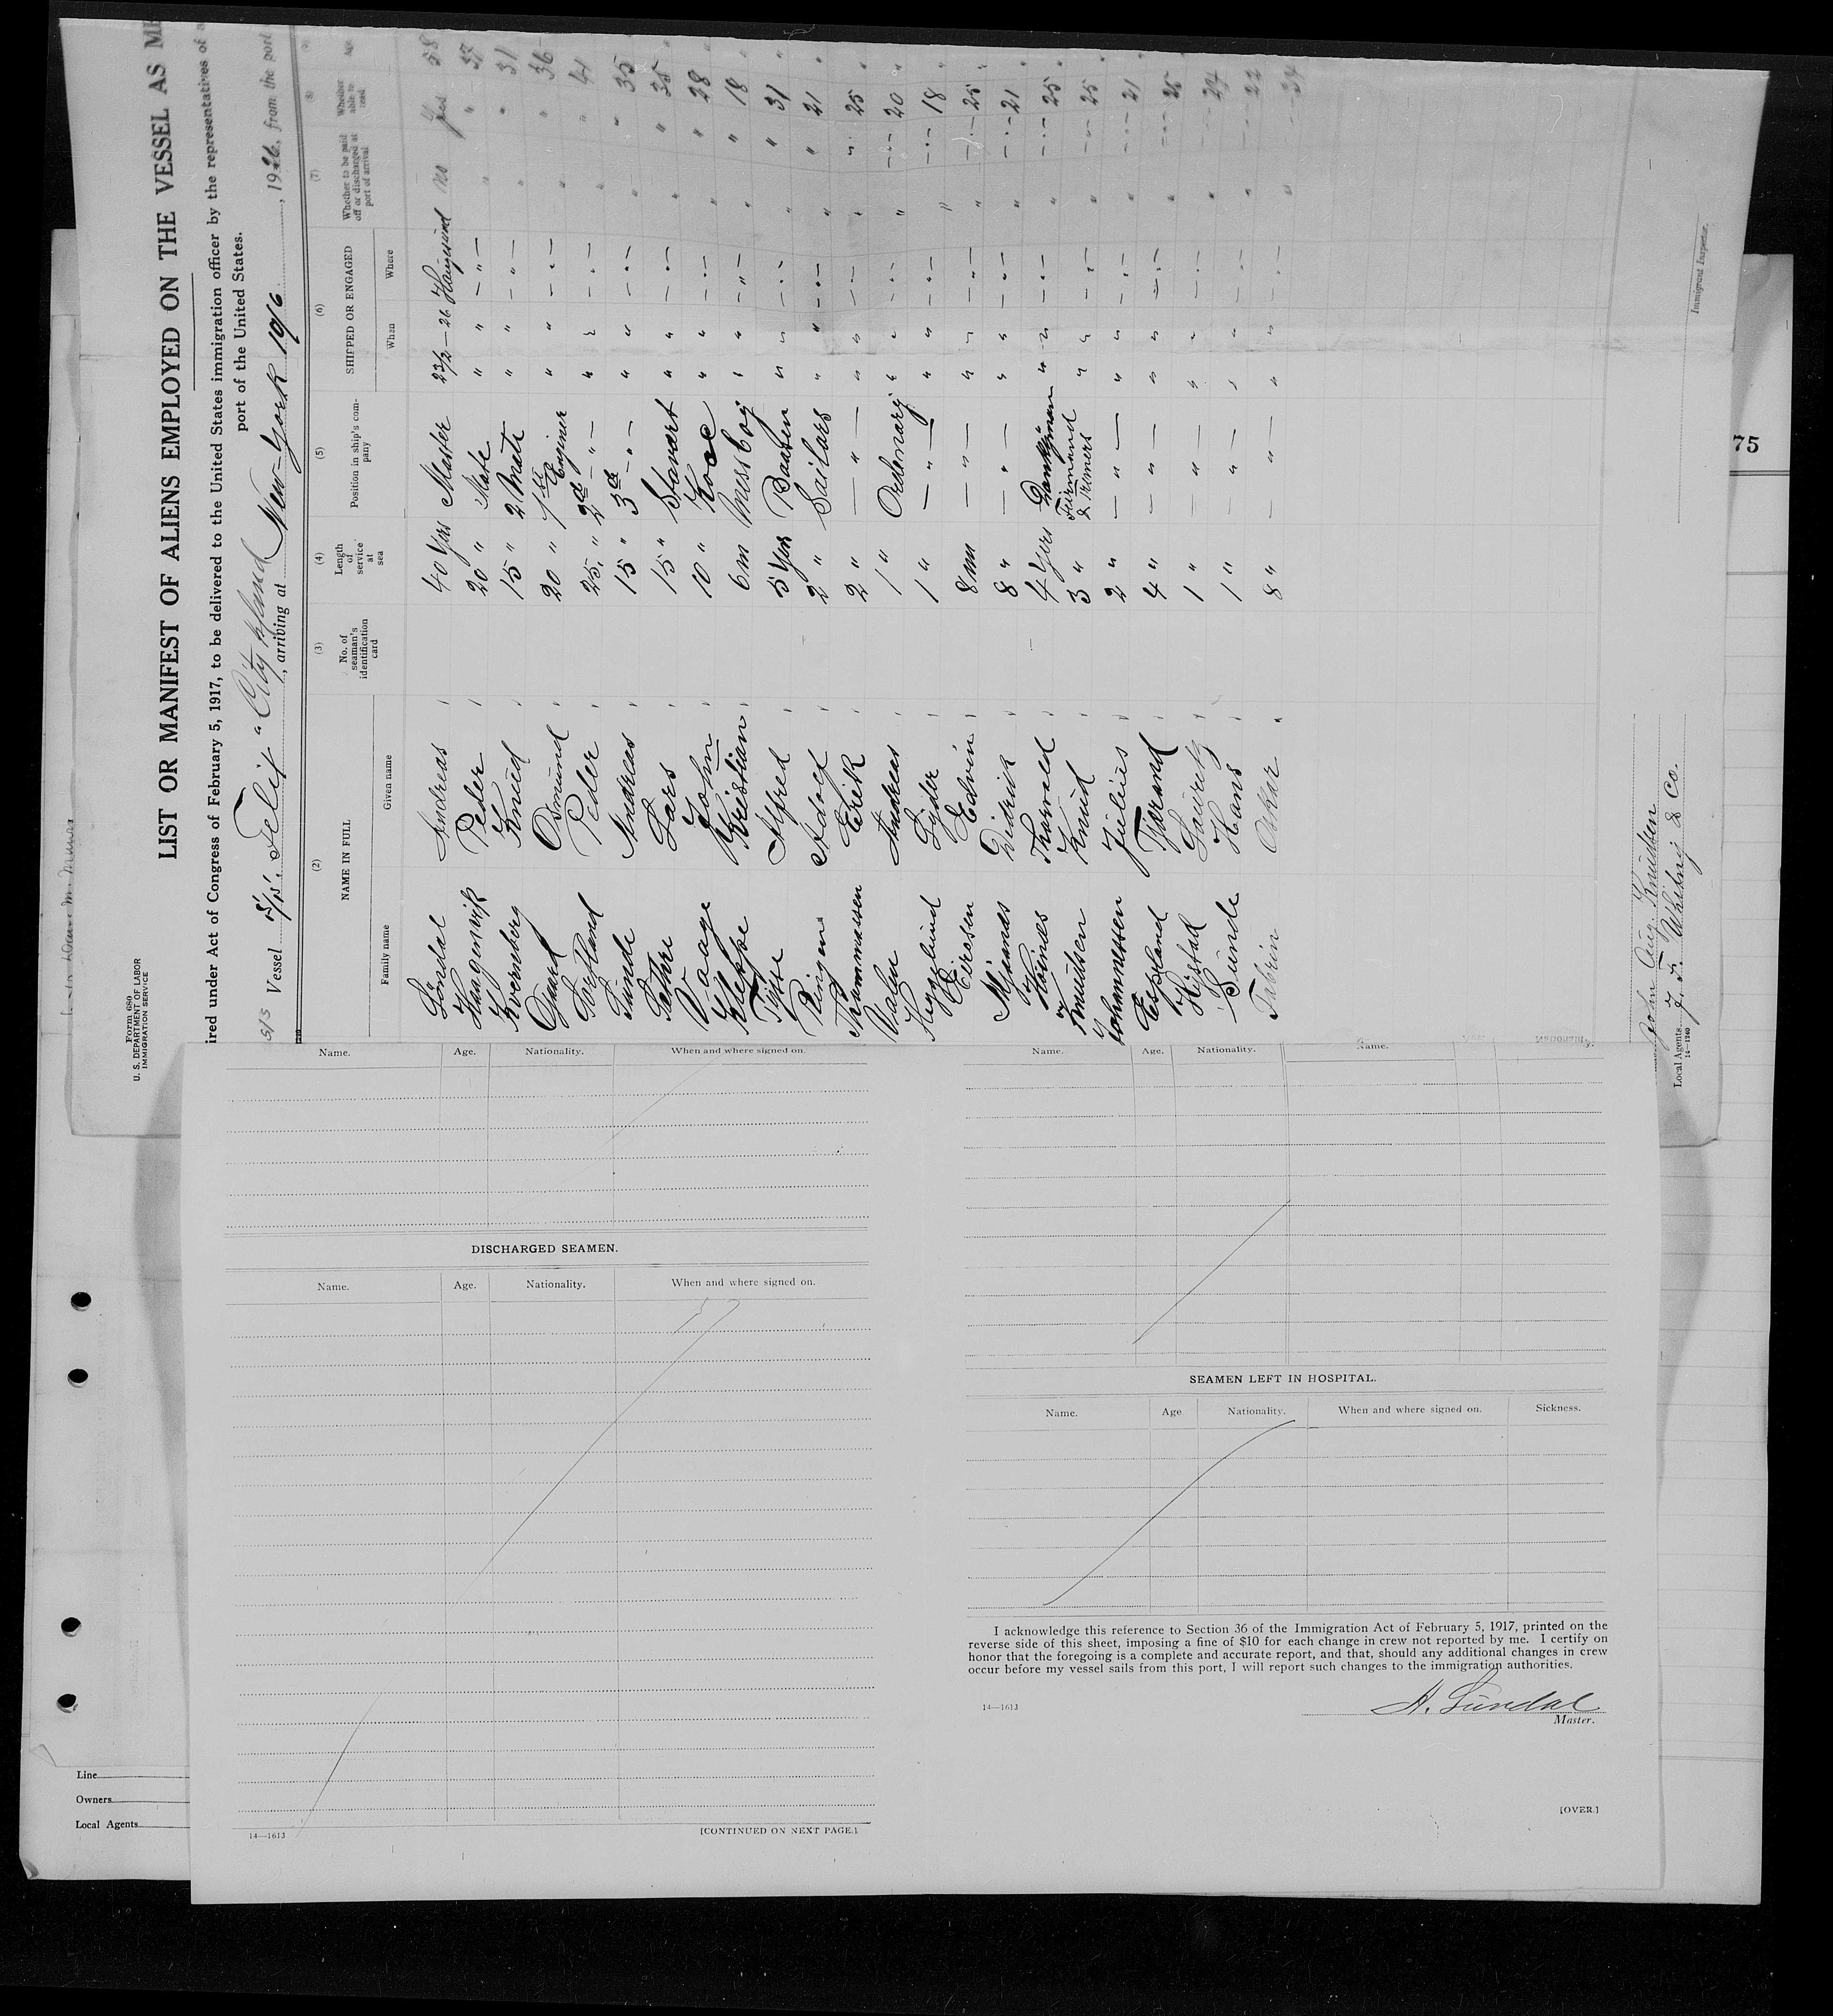 Form 680
U. S. DEPARTMENT OF LABOR
IMMIGRATION SERVICE
LIST OR MANIFEST OF ALIENS EMPLOYED ON THE VESSEL AS ME
ired under Act of Congress of February 5, 1917, to be delivered to the United States immigration officer by the representatives of a
port of the United States.
Vessel S/S. , arriving at New-York 10/6, 1926, from the port
(2) (3) (4) (5) (6) (7) (8) (9)
NAME IN FULL No. of seaman's identification card Length of service at sea Position in ship's company SHIPPED OR ENGAGED Whether to be paid off or discharged at port of arrival Whether able to read Age
Family name Given name When Where
Andreas 40 yrs Master 23/2 — 26 Haugesund no yes 58
Haagensvik Peder 20 " Mate " " — " — " " 37
Kvernberg Knud 15 " 2 Mate " " — " — " " 31
Osmund 20 " 1st Enginer " " — " — " " 36
Peder 25 " 2d — " — " " — " — " " 41
Sunde Andreas 15 " 3d — " — " " — " — " " 35
Sæthre Lars 15 " Stewart " " — " — " " 35
Vaage John 10 " " " — " — " " 28
Kleppe Kristian 6 m Messboy " " — " — " " 18
Alfred 5 yrs " " — " — " " 31
Ringen Adolf 2 " Sailars " " — " — " " 21
Erik 2 " — " — " " — " — " " 25
Valen Andreas 1 " Ordenary " " — " — " " 20
Hegglund 1 " — " — " " — " — " " 18
Edvin 8 m — " — " " — " — " " 25
Didrik 8 " — " — " " — " — " " 21
Thorvald 4 yrs Donkeyman " " — " — " " 25
Knudsen Knud 3 " Feirmand & Tremers " " — " — " " 25
Johannessen Julius 2 " — " — " " — " — " " 21
Espeland 4 " — " — " " — " — " "
Lauritz 1 " — " — " " — " — " " 24
Sunde Hans 1 " — " — " " — " — " " 22
Oskar 8 " — " — " " — " — " " 24
John Aug. Knudsen
Local Agents J. F. Whitney & Co.
14—1240
Immigrant Inspector.
75
Name. Age. Nationality. When and where signed on.
DISCHARGED SEAMEN.
Name. Age. Nationality. When and where signed on.
14—1613
[CONTINUED ON NEXT PAGE.]
Name. Age. Nationality. Name. Nationality.
SEAMEN LEFT IN HOSPITAL.
Name. Age Nationality. When and where signed on. Sickness.
I acknowledge this reference to Section 36 of the Immigration Act of February 5, 1917, printed on the
reverse side of this sheet, imposing a fine of $10 for each change in crew not reported by me. I certify on
honor that the foregoing is a complete and accurate report, and that, should any additional changes in crew
occur before my vessel sails from this port, I will report such changes to the immigration authorities.
14—1613
A. Sündal
Master.
[OVER.]
Line
Owners
Local Agents